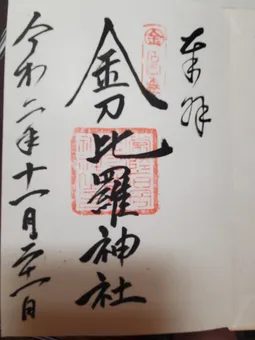 奉拝
金刀比羅神社
令和二年十一月二十一日